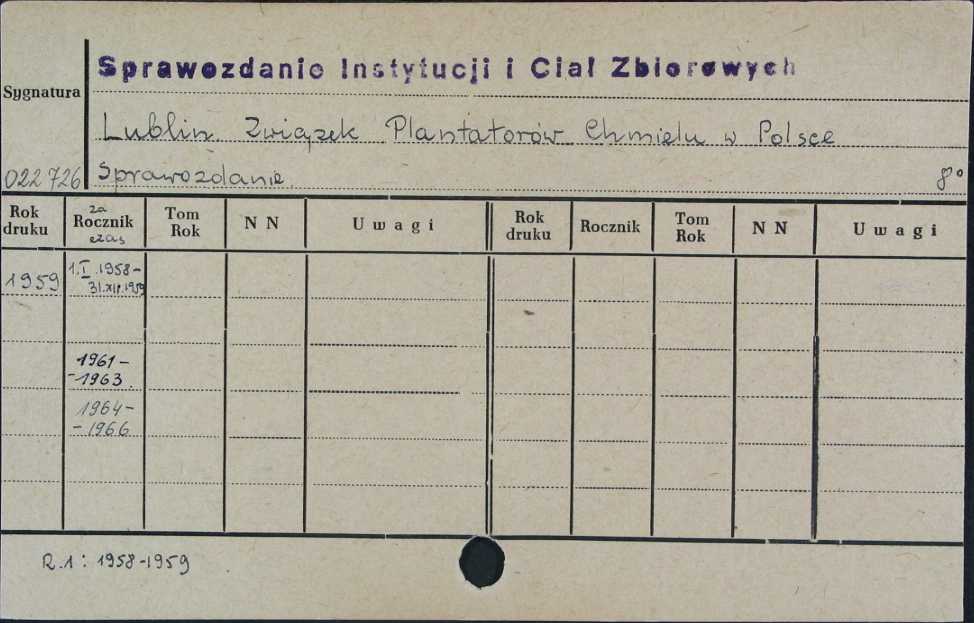 Sprawozdanie Instytucji i Ciał Zbiorowych
Sygnatura
Lublin. Związek Plantatorów Chmielu w Polsce
022726 Sprawozdanie. 8°
Rok druku za Rocznik czas Tom Rok N N Uwagi Rok druku Rocznik Tom Rok N N Uwagi
1959 1.I.1958-
31.XII.1959
1961-
-1963.
1964-
-1966
R.1: 1958-1959